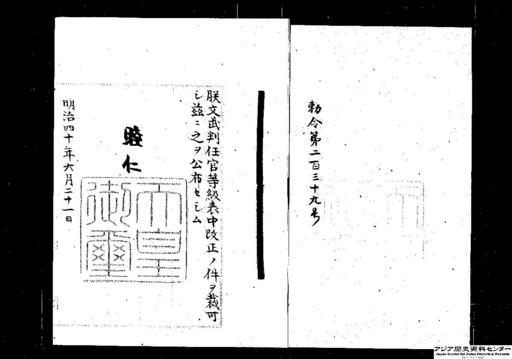 勅令第二百三十九号
朕文武判任官等級表中改正ノ件ヲ裁可
シ茲ニ之ヲ公布セシム
睦仁
天皇御璽
明治四十年六月二十一日
アジア歴史資料センター
Japan Center for Asian Historical Records